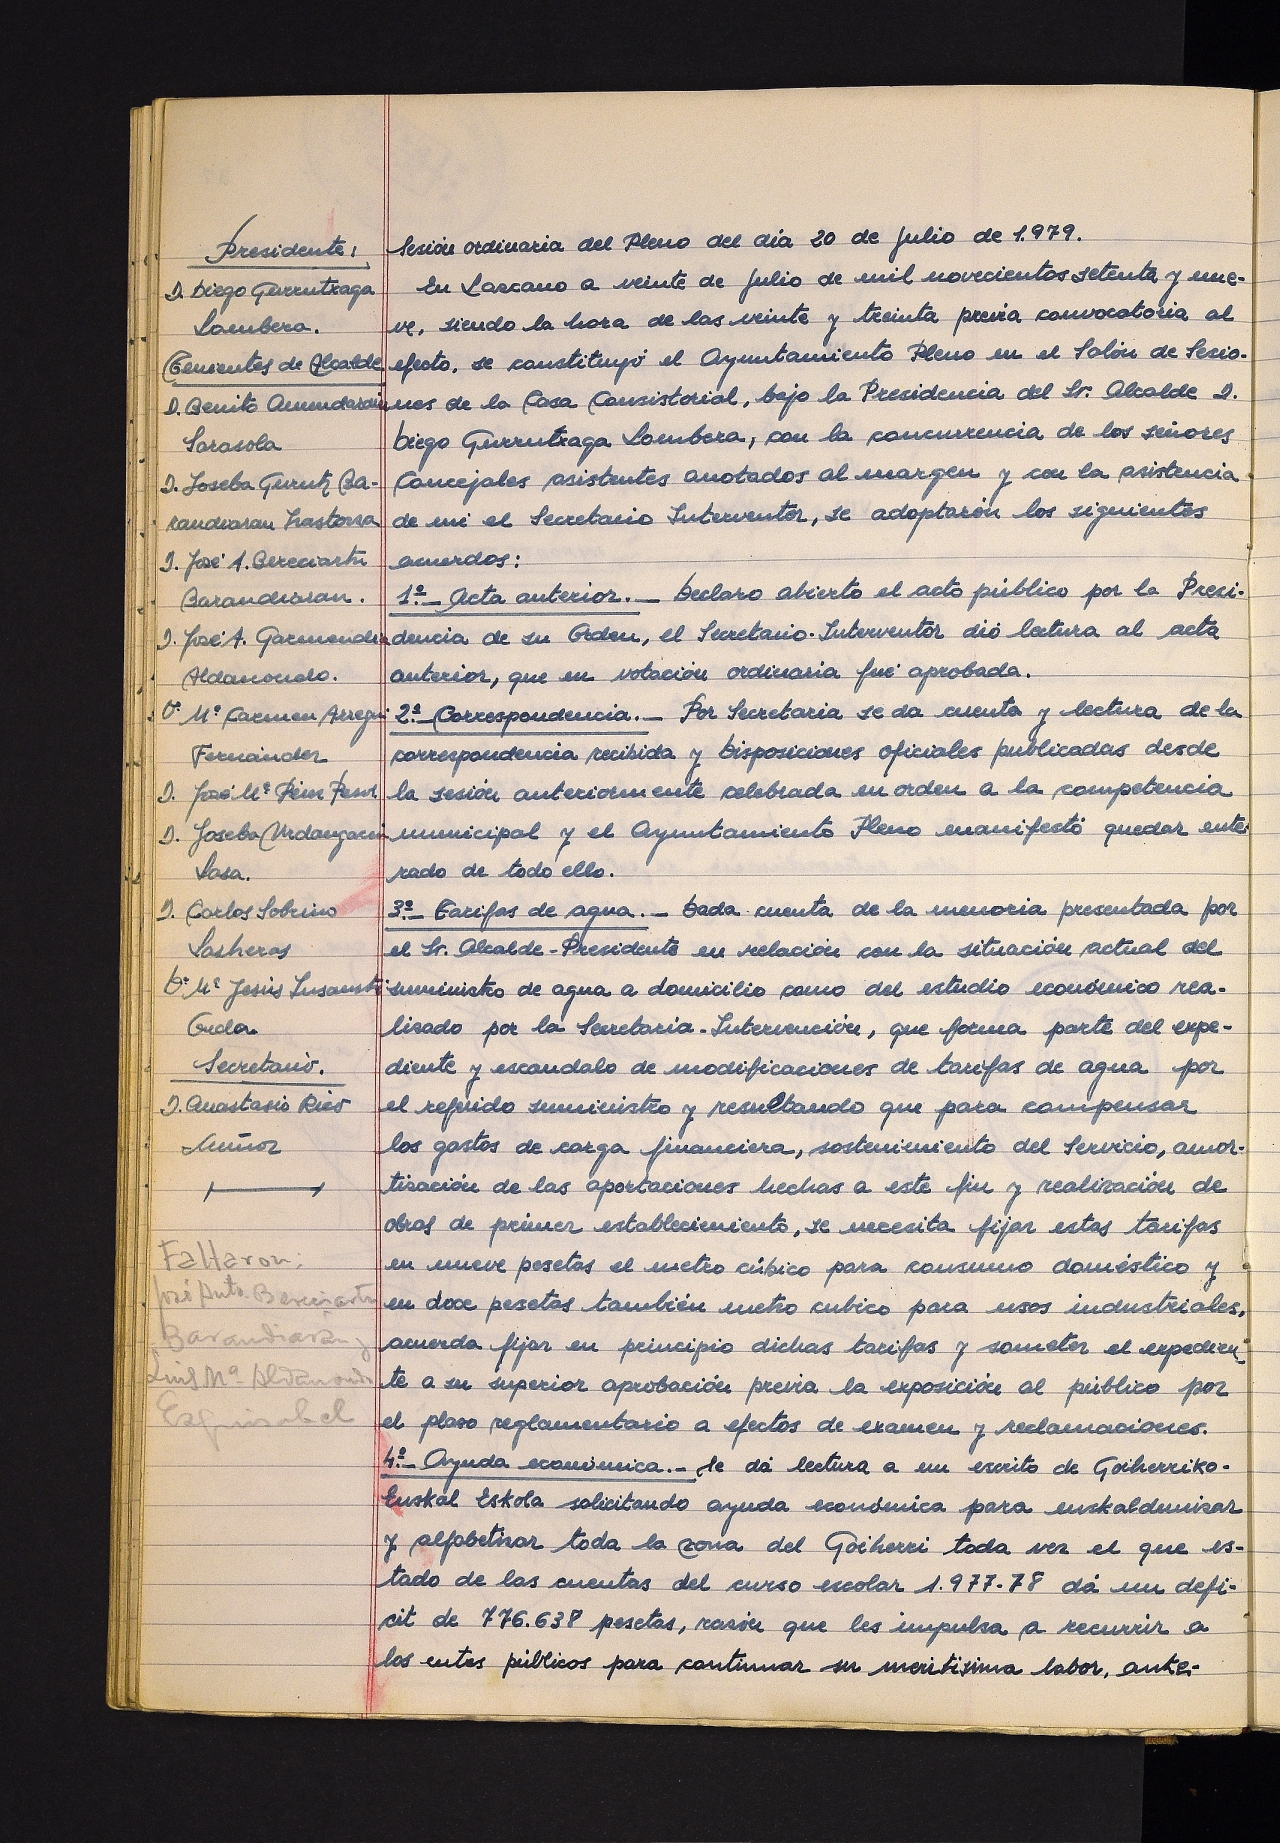 Presidente:
D. Diego Gurrutxaga
Lombera.
Tenientes de Alcalde
D. Benito Amundarain
Sarasola
D. Joseba Gurutz Ba-
randiaran
D. José A. Bereciartu
Barandiaran.
D. José A. Garmendia
Aldanondo.
Dª Mª Carmen Arregui
Fernández
D. José Mª Pérez
D. Joseba Urdangarin
Lasa.
D. Carlos Sobrino
Lasheras
Dª Mª Jesús Insausti
Secretario.
D. Anastasio Rico
Muñoz
Faltaron:
José Antº Bereciartu
Barandiarán y
Luis Mª Aldanondo
Ezquisabel
Sesión ordinaria del Pleno del día 20 de Julio de 1.979.
En Lazcano a veinte de Julio de mil novecientos setenta y nue-
ve, siendo la hora de las veinte y treinta previa convocatoria al
efecto, se constituyó el Ayuntamiento Pleno en el Salón de Sesio-
nes de la Casa Consistorial, bajo la Presidencia del Sr. Alcalde D.
Diego Gurrutxaga Lombera, con la concurrencia de los señores
Concejales asistentes anotados al margen y con la asistencia
de mi el Secretario Interventor, se adoptarón los siguientes
acuerdos:
1º.- Acta anterior.- Declaro abierto el acto público por la Presi-
dencia de su Orden, el Secretario-Interventor dió lectura al acta
anterior, que en votación ordinaria fué aprobada.
2º.- Correspondencia.- Por Secretaria se da cuenta y lectura de la
correspondencia recibida y Disposiciones oficiales publicadas desde
la sesión anteriormente celebrada en orden a la competencia
municipal y el Ayuntamiento Pleno manifestó quedar ente-
rado de todo ello.
3º.- Tarifas de agua.- Dada cuenta de la memoria presentada por
el Sr. Alcalde-Presidente en relación con la situación actual del
suministro de agua a domicilio como del estudio económico rea-
lisado por la Secretaria-Intervención, que forma parte del expe-
diente y escandalo de modificaciones de tarifas de agua por
el referido suministro y resultando que para compensar
los gastos de carga financiera, sostenimiento del Servicio, amor-
tización de las aportaciones hechas a este fin y realización de
obras de primer establecimiento, se necesita fijar estas tarifas
en nueve pesetas el metro cúbico para consumo doméstico y
en doce pesetas también metro cubico para usos industriales,
acuerda fijar en principio dichas tarifas y someter el expedien-
te a su superior aprobación previa la exposición al público por
el plazo reglamentario a efectos de examen y reclamaciones.
4º.- Ayuda económica.- Se dá lectura a un escrito de Goiherriko-
Euskal Eskola solicitando ayuda económica para euskaldunizar
y alfabetizar toda la zona del Goiherri toda vez el que es-
tado de las cuentas del curso escolar 1.977-78 dá un defi-
cit de 776.638 pesetas, razón que les impulsa a recurrir a
los entes públicos para continuar su meritísima labor, ante-